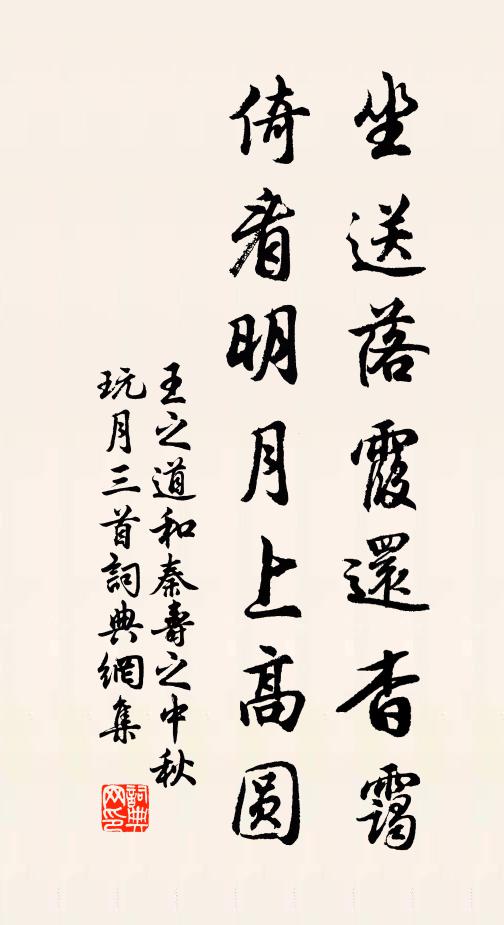 坐送落霞還杳靄
倚看明月上高圓
王之道和秦壽之中秋
玩月三首詞典網集
詞典
网印